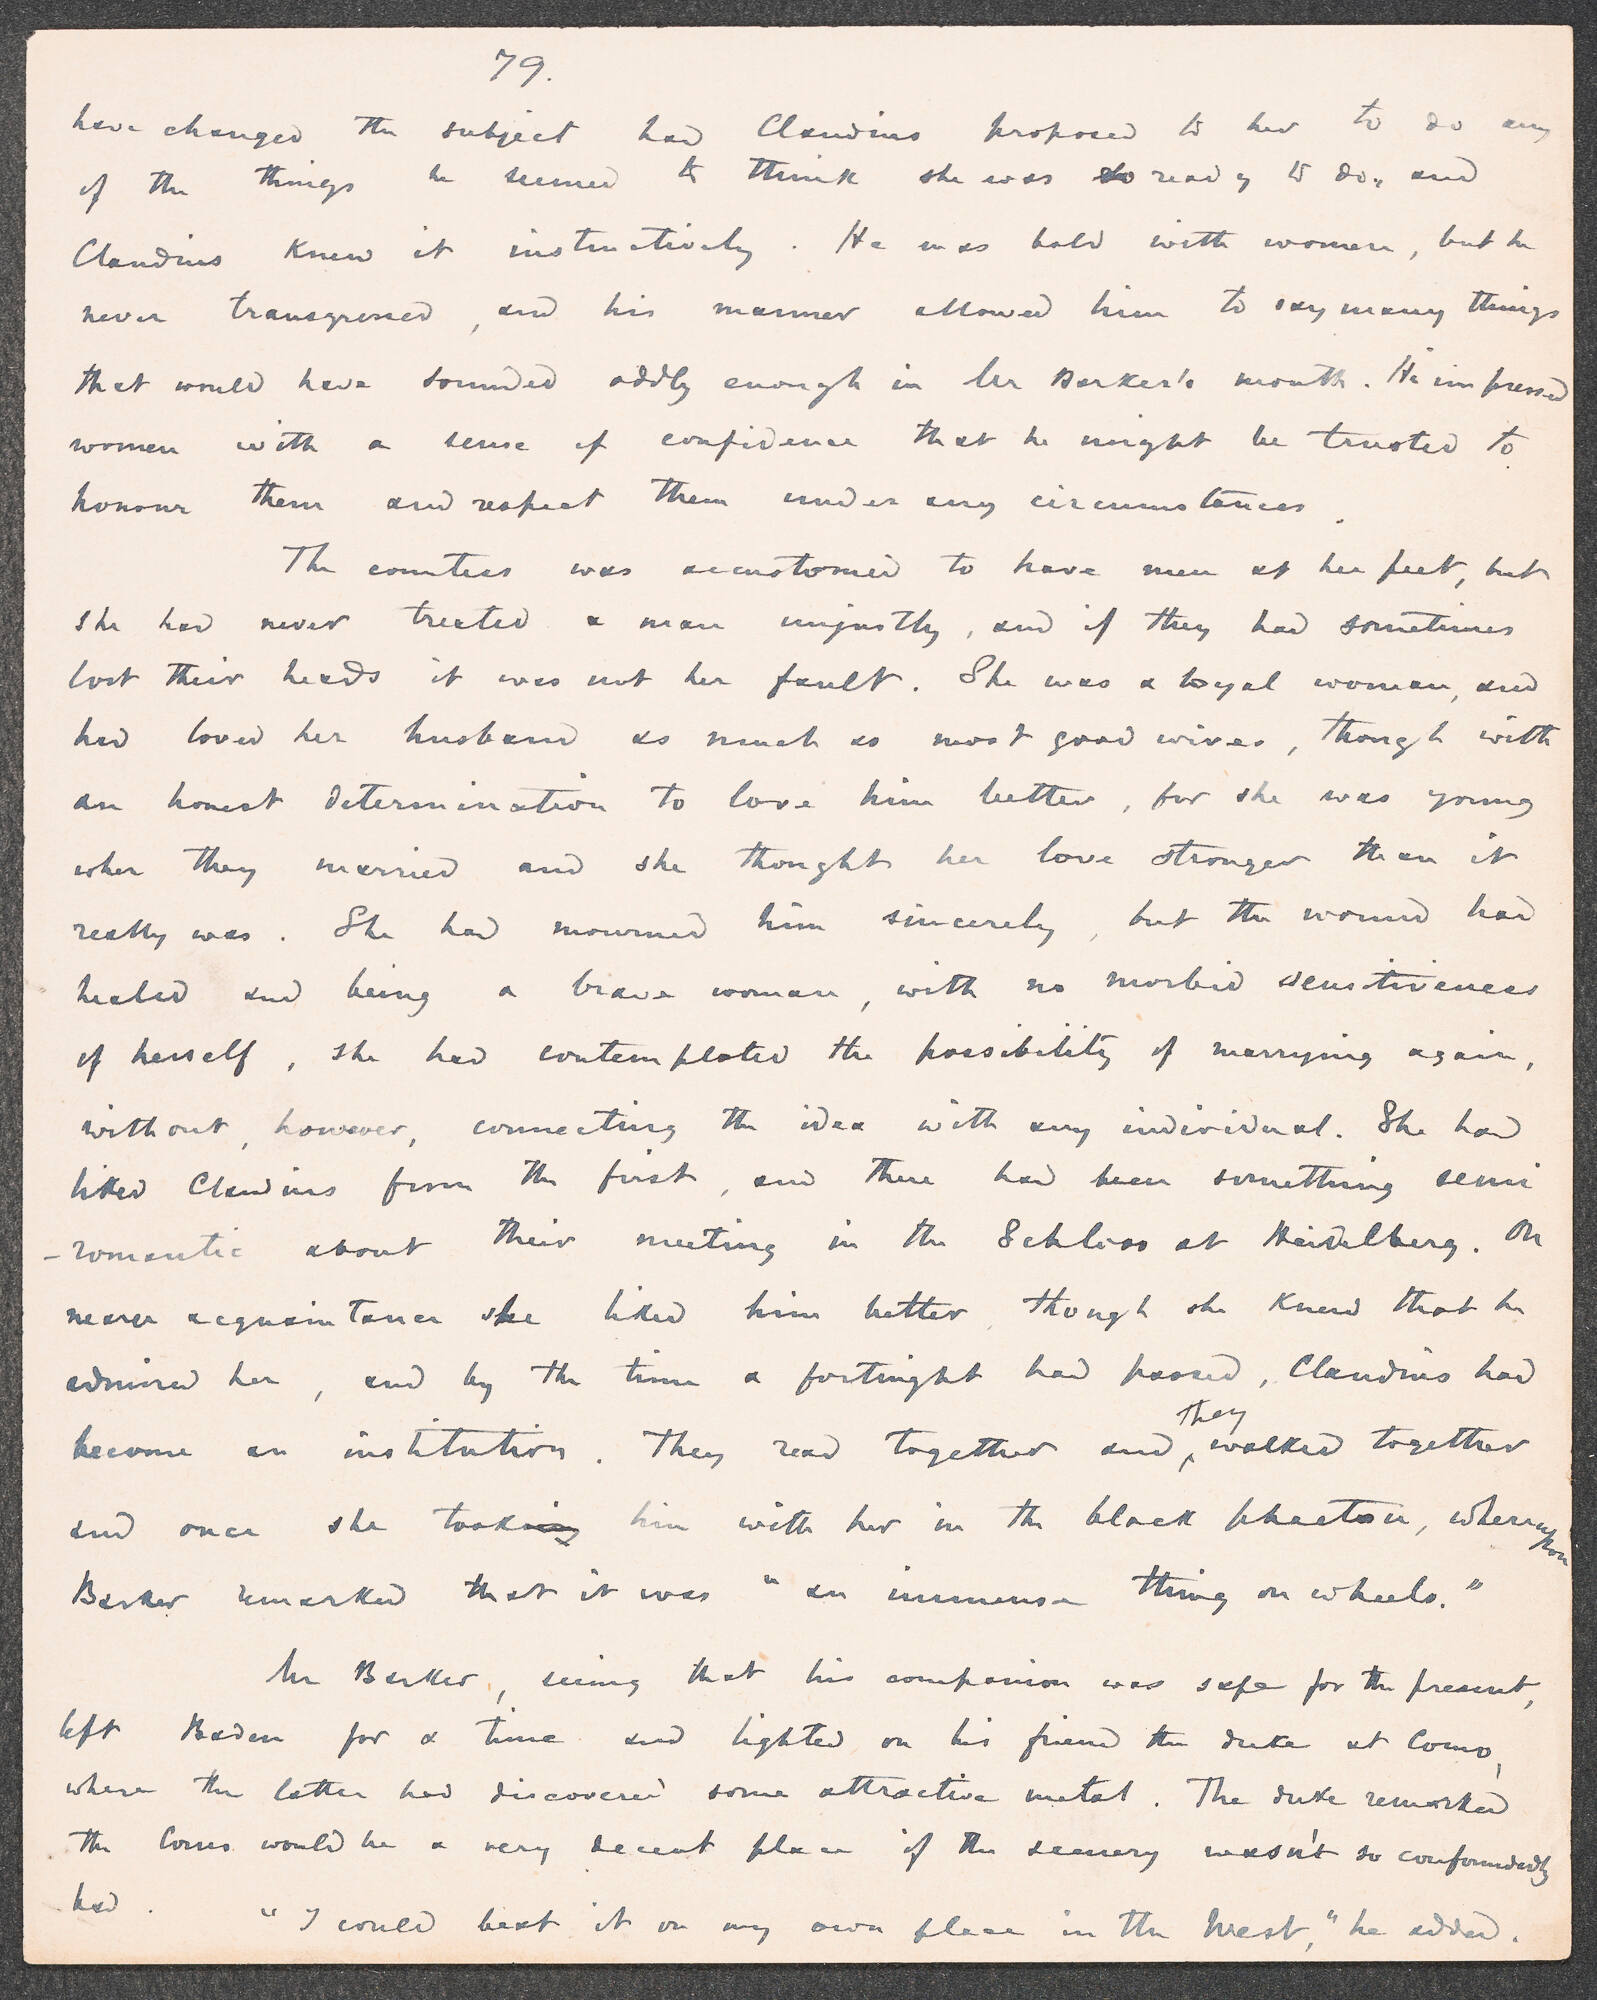 79.
have changed the subject had Claudius proposed to her to do any
of the things he seemed to think she was so ready to do, and
Claudius knew it instinctively. He was bold with women, but he
never transgressed, and his manner allowed him to say many things
that would have sounded oddly enough in Mr Barker's mouth. He impressed
women with a sense of confidence that he might be trusted to
honour them and respect them under any circumstances.
The countess was accustomed to have men at her feet, but
she had never treated a man unjustly, and if they had sometimes
lost their heads it was not her fault. She was a loyal woman, and
had loved her husband as much as most good wives, though with
an honest determination to love him better, for she was young
when they married and she thought her love stronger than it
really was. She had mourned him sincerely, but the wound had
healed and being a brave woman, with no morbid sensitiveness
of herself, she had contemplated the possibility of marrying again,
without, however, connecting the idea with any individual. She had
liked Claudius from the first, and there had been something semi
-romantic about their meeting in the Schloss at Heidelberg. On
nearer acquaintance she liked him better, though she knew that he
admired her, and by the time a fortnight had passed, Claudius had
become an institution. They read together and they walked together
and once she took him with her in the black phaeton, whereupon
Barker remarked that it was "an immense thing on wheels."
Mr Barker, seeing that his companion was safe for the present,
left Baden for a time and lighted on his friend the duke at Como,
where the latter had discovered some attractive metal. The duke remarked
the Como would be a very decent place if the scenery wasn't so confoundedly
bad. "I could beat it on my own place in the West," he added.